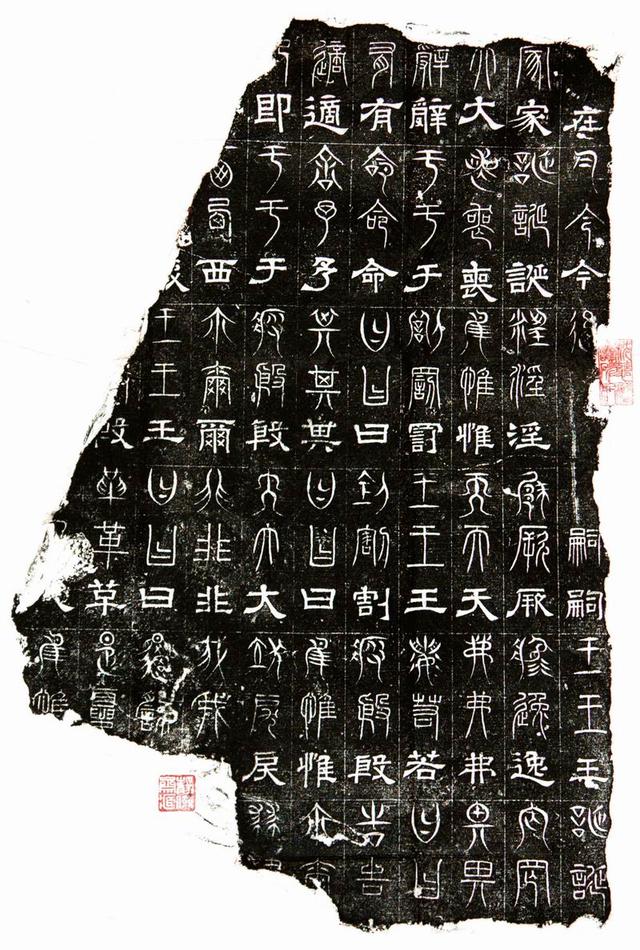 在今今今後嗣嗣王王王誕誕
家家誕誕誕淫淫淫厥厥厥逸逸逸罔罔
大大喪喪喪惟惟惟天天天弗弗弗畀畀
辭辭于于于罰罰罰王王王若若若曰曰
有有命命命曰曰曰割割割殷殷殷告告
適適予予予其其其曰曰曰惟惟惟爾爾
即即于于于殷殷殷大大大戾戾戾肆肆
西西西爾爾爾非非非我我
王王王曰曰曰
殷革革革夏夏
人惟惟